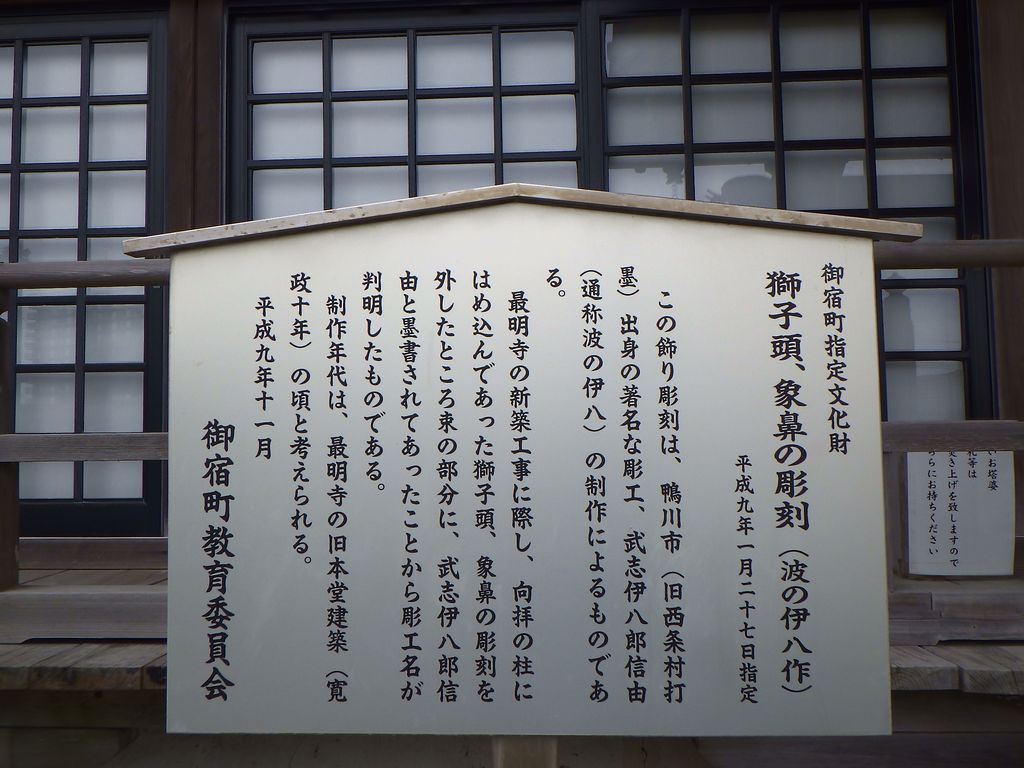 御宿町指定文化財
獅子頭、象鼻の彫刻(波の伊八作)
平成九年一月二十七日指定
この飾り彫刻は、鴨川市(旧西条村打
墨)出身の著名な彫工、武志伊八郎信由
(通称波の伊八)の制作によるものであ
る。
最明寺の新築工事に際し、向拝の柱に
はめ込んであった獅子頭、象鼻の彫刻を
外したところ束の部分に、武志伊八郎信
由と墨書されてあったことから彫工名が
判明したものである。
制作年代は、最明寺の旧本堂建築(寛
政十年)の頃と考えられる。
平成九年十一月
御宿町教育委員会
いお塔婆
札等は
焚き上げを致しますので
ちらにお持ちください